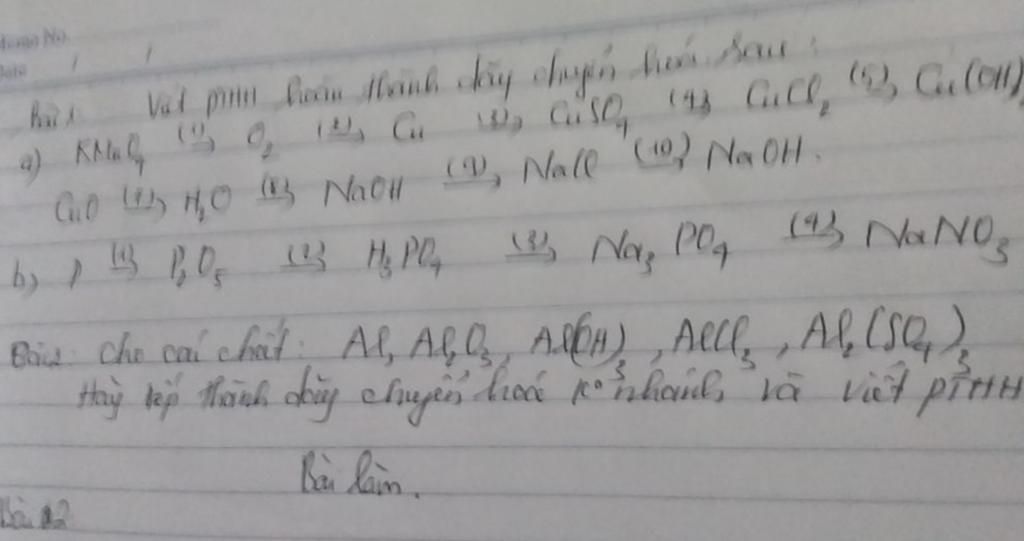 Date / /
Bài 1: Viết PTHH hoàn thành dãy chuyển hoá sau:
a) KMnO4 (1)→ O2 (2)→ Cu (3)→ CuSO4 (4)→ CuCl2 (5)→ Cu(OH)2
CuO (7)→ H2O (8)→ NaOH (9)→ NaCl (10)→ NaOH.
b) P (1)→ P2O5 (2)→ H3PO4 (3)→ Na3PO4 (4)→ NaNO3
Bài 2: Cho cái chất: Al, Al2O3, Al(OH)3, AlCl3, Al2(SO4)3
Hãy xếp thành dãy chuyển hoá ko nhánh và viết PTHH
Bài làm.
Bài 2